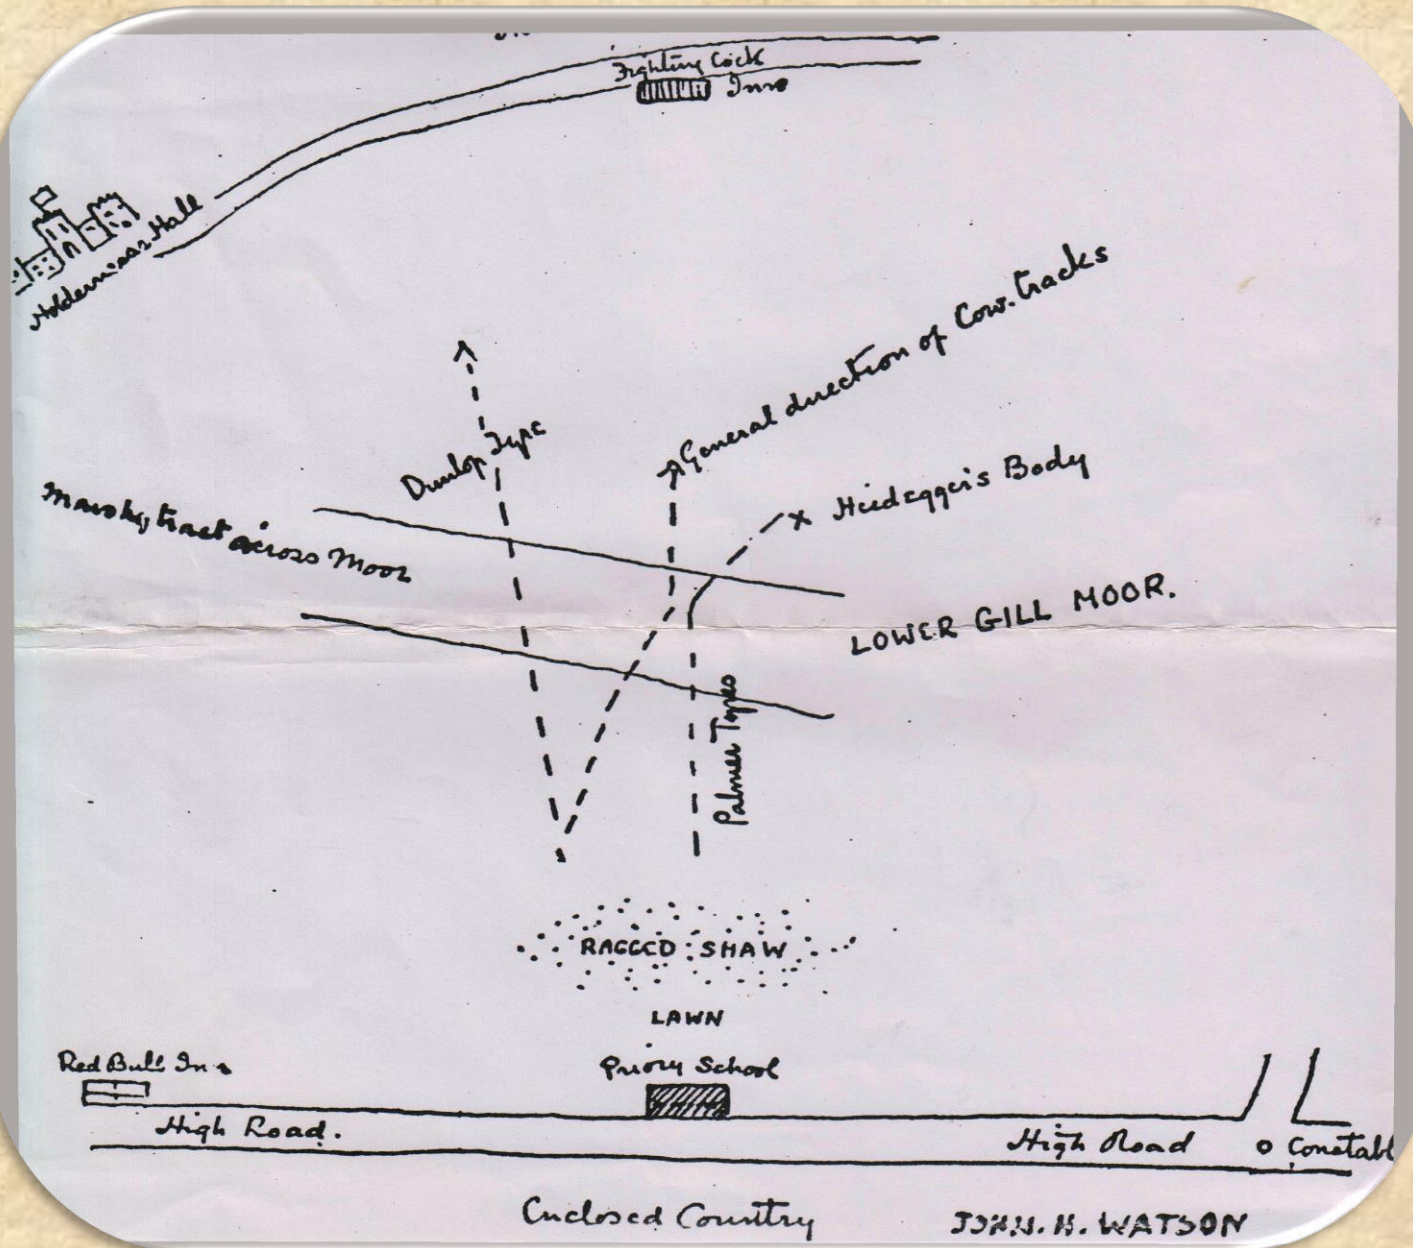 Fighting Cock
Inn
Holderness Hall
General direction of Cow-tracks
Dunlop Tyre
Heidegger's Body
Marshy tract across Moor
LOWER GILL MOOR.
Palmer Tyres
RAGGED SHAW
LAWN
Red Bull Inn
Priory School
High Road.
High Road
Constabl
Enclosed Country
JOHN. H. WATSON